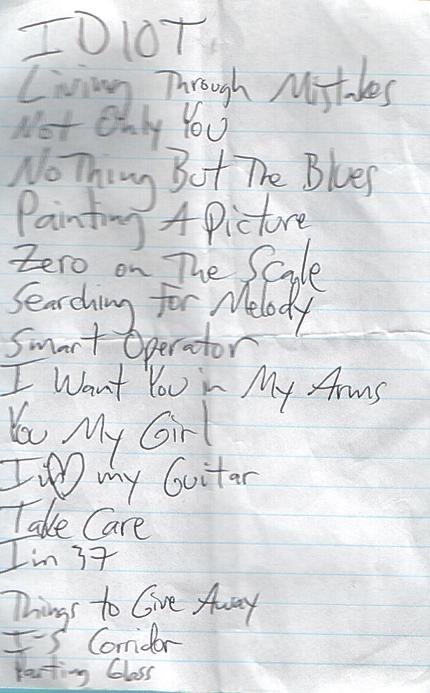 IDIOT
Living Through Mistakes
Not Only You
Nothing But The Blues
Painting A Picture
Zero on The Scale
Searching for Melody
Smart Operator
I Want You in My Arms
You My Girl
I ♡ my Guitar
Take Care
I'm 37
Things to Give Away
I-5 Corridor
Parting Glass